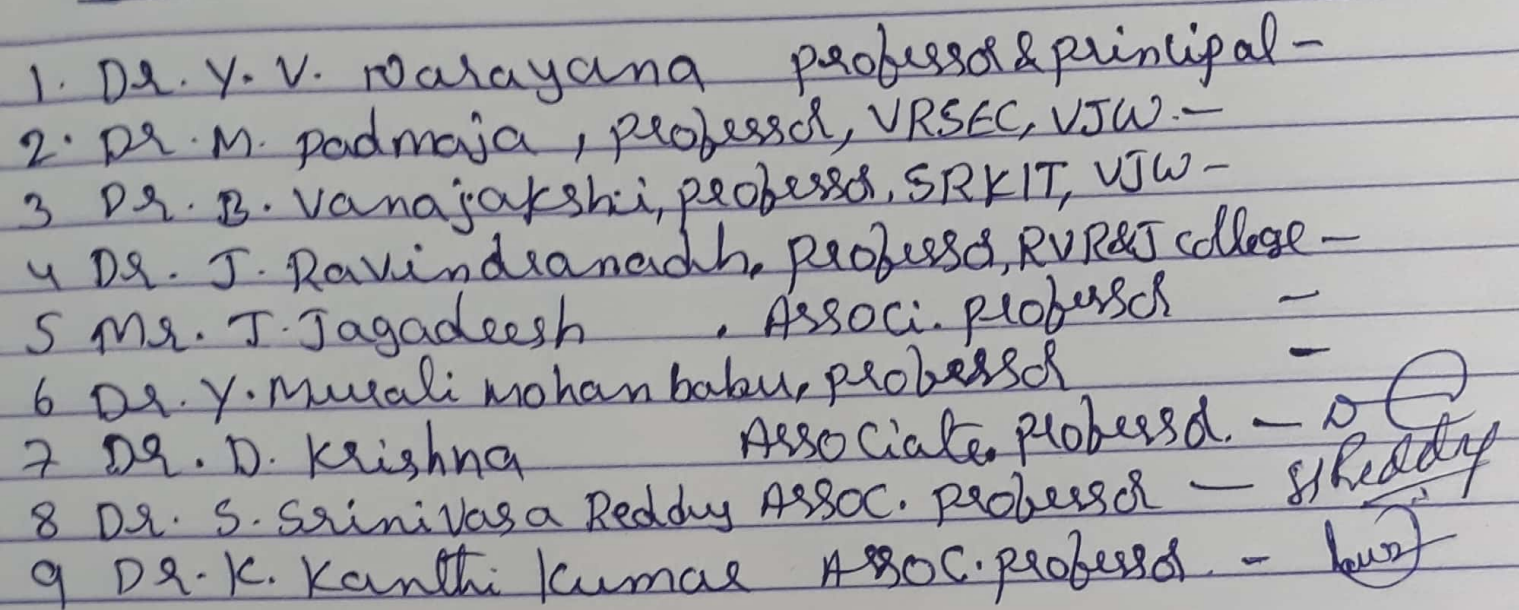 1. Dr. Y. V. Narayana professor & principal -
2. Dr. M. padmaja, professor, VRSEC, VJW. -
3 Dr. B. Vanajakshi, professor, SRKIT, VJW -
4 Dr. J. Ravindranadh, professor, RVR&J college -
5 Mr. J. Jagadeesh , Associ. professor -
6 Dr. Y. Murali mohan babu, professor -
7 Dr. D. Krishna Associate professor. -
8 Dr. S. Srinivasa Reddy Assoc. professor - SSReddy
9 Dr. K. Kanthi Kumar Assoc. professor. -